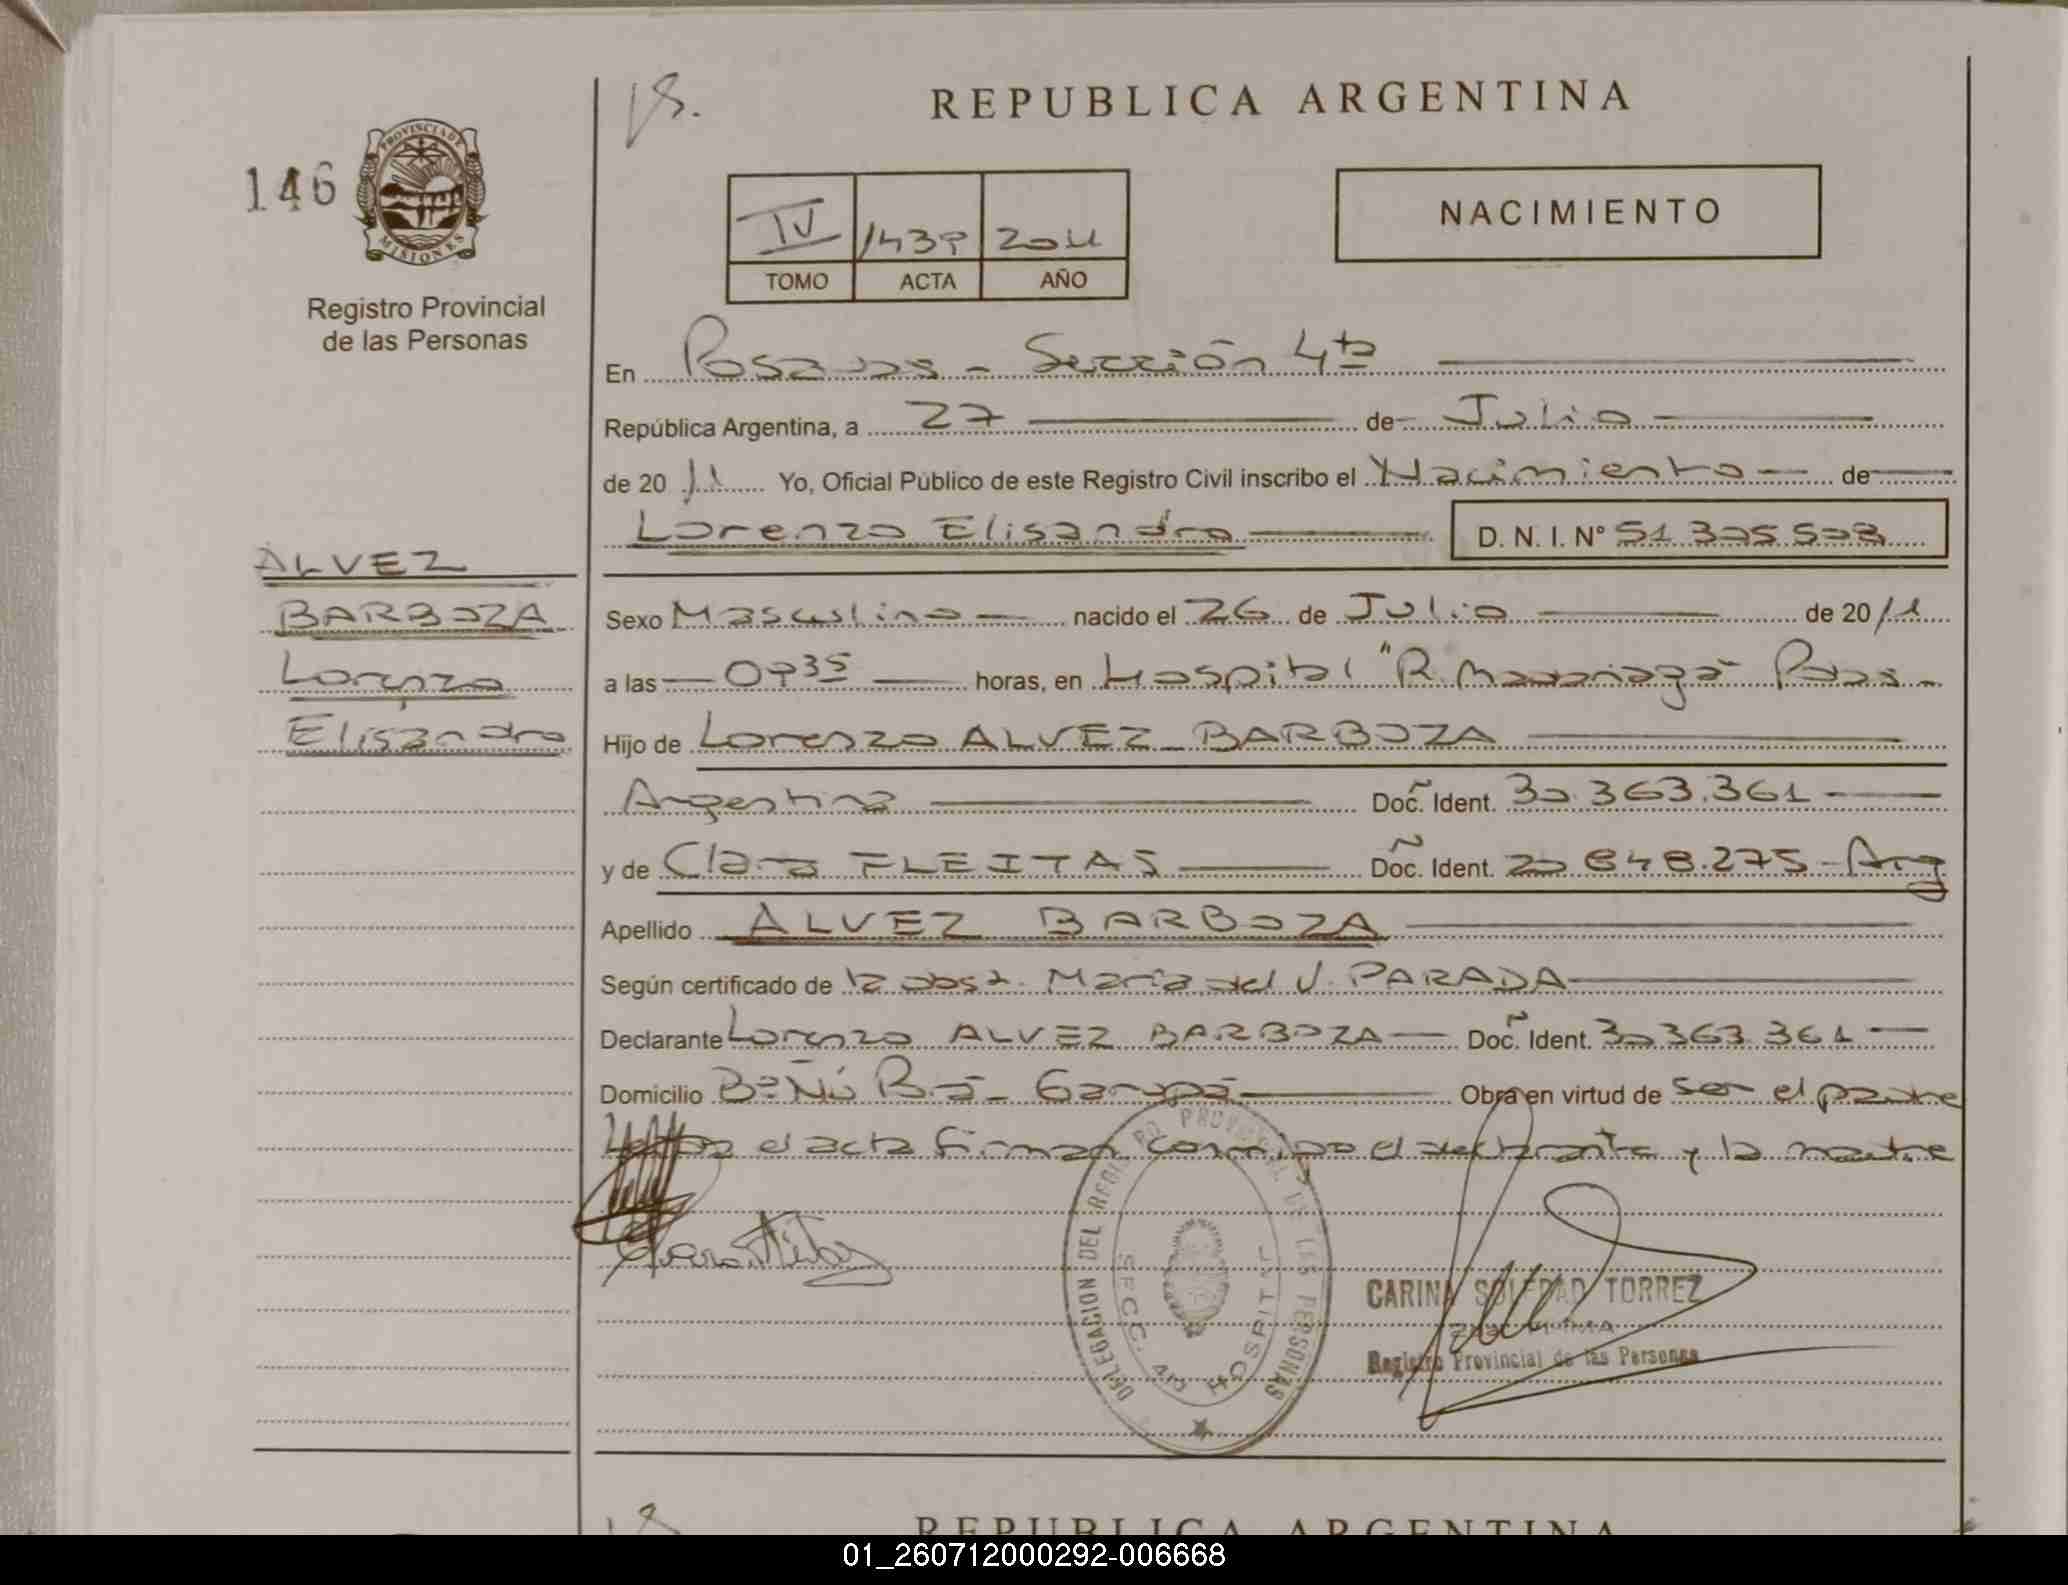 REPUBLICA ARGENTINA
146
PROVINCIA DE
MISIONES
Registro Provincial
de las Personas
IV 1439 2011
TOMO ACTA AÑO
NACIMIENTO
En Posadas - Sección 4ta
República Argentina, a 27 de Julio
de 20 11 Yo, Oficial Público de este Registro Civil inscribo el Nacimiento de
Lorenzo Elisandro D. N. I. Nº 51 305 503
ALVEZ
BARBOZA
Lorenzo
Elisandro
Sexo Masculino nacido el 26 de Julio de 20 11
a las 09 35 horas, en Hospital "R. Madariaga" Pdas -
Hijo de Lorenzo ALVEZ BARBOZA
Argentina Doc. Ident. 30.363.361
y de Clara FLEITAS Doc. Ident. 20 848.275 - Arg
Apellido ALVEZ BARBOZA
Según certificado de la obst. María del V. PARADA
Declarante Lorenzo ALVEZ BARBOZA Doc. Ident. 30 363 361
Domicilio Bº Ñú - Garupá Obra en virtud de ser el padre
el acta firman conmigo el declarante y la madre
DELEGACION DEL REGISTRO PROVINCIAL DE LAS PERSONAS
SECC. 4ta HOSPITAL
CARINA SOLEDAD TORREZ
Registro Provincial de las Personas
REPUBLICA ARGENTINA
01_260712000292-006668